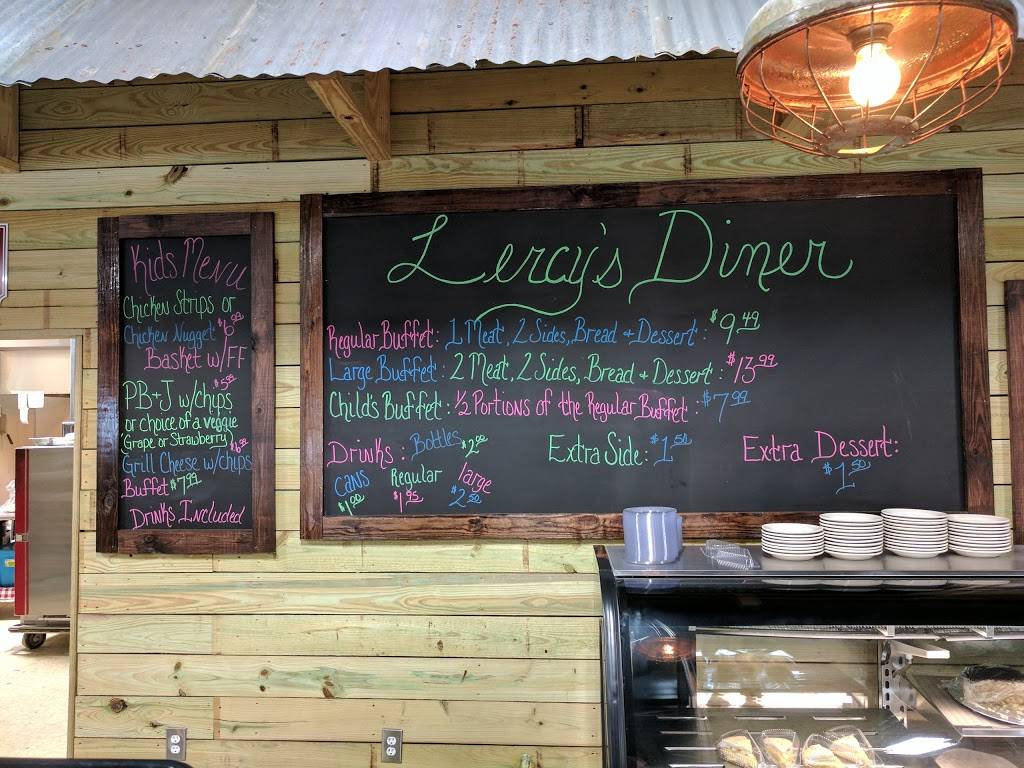 Kids Menu
Chicken Strips or
Chicken Nugget $6.99
Basket w/FF
$5.99
PB+J w/chips
or choice of a veggie
Grape or Strawberry
Grill Cheese w/chips
Buffet $7.99
Drinks Included
Lercy's Diner
Regular Buffet: 1 Meat, 2 Sides, Bread + Dessert: $9.49
Large Buffet: 2 Meat, 2 Sides, Bread + Dessert: $13.99
Child's Buffet: 1/2 Portions of the Regular Buffet: $7.99
Drinks: Bottles $2.00
Cans $1.00
Regular $1.95
large $2.50
Extra Side: $1.50
Extra Dessert:
$1.50